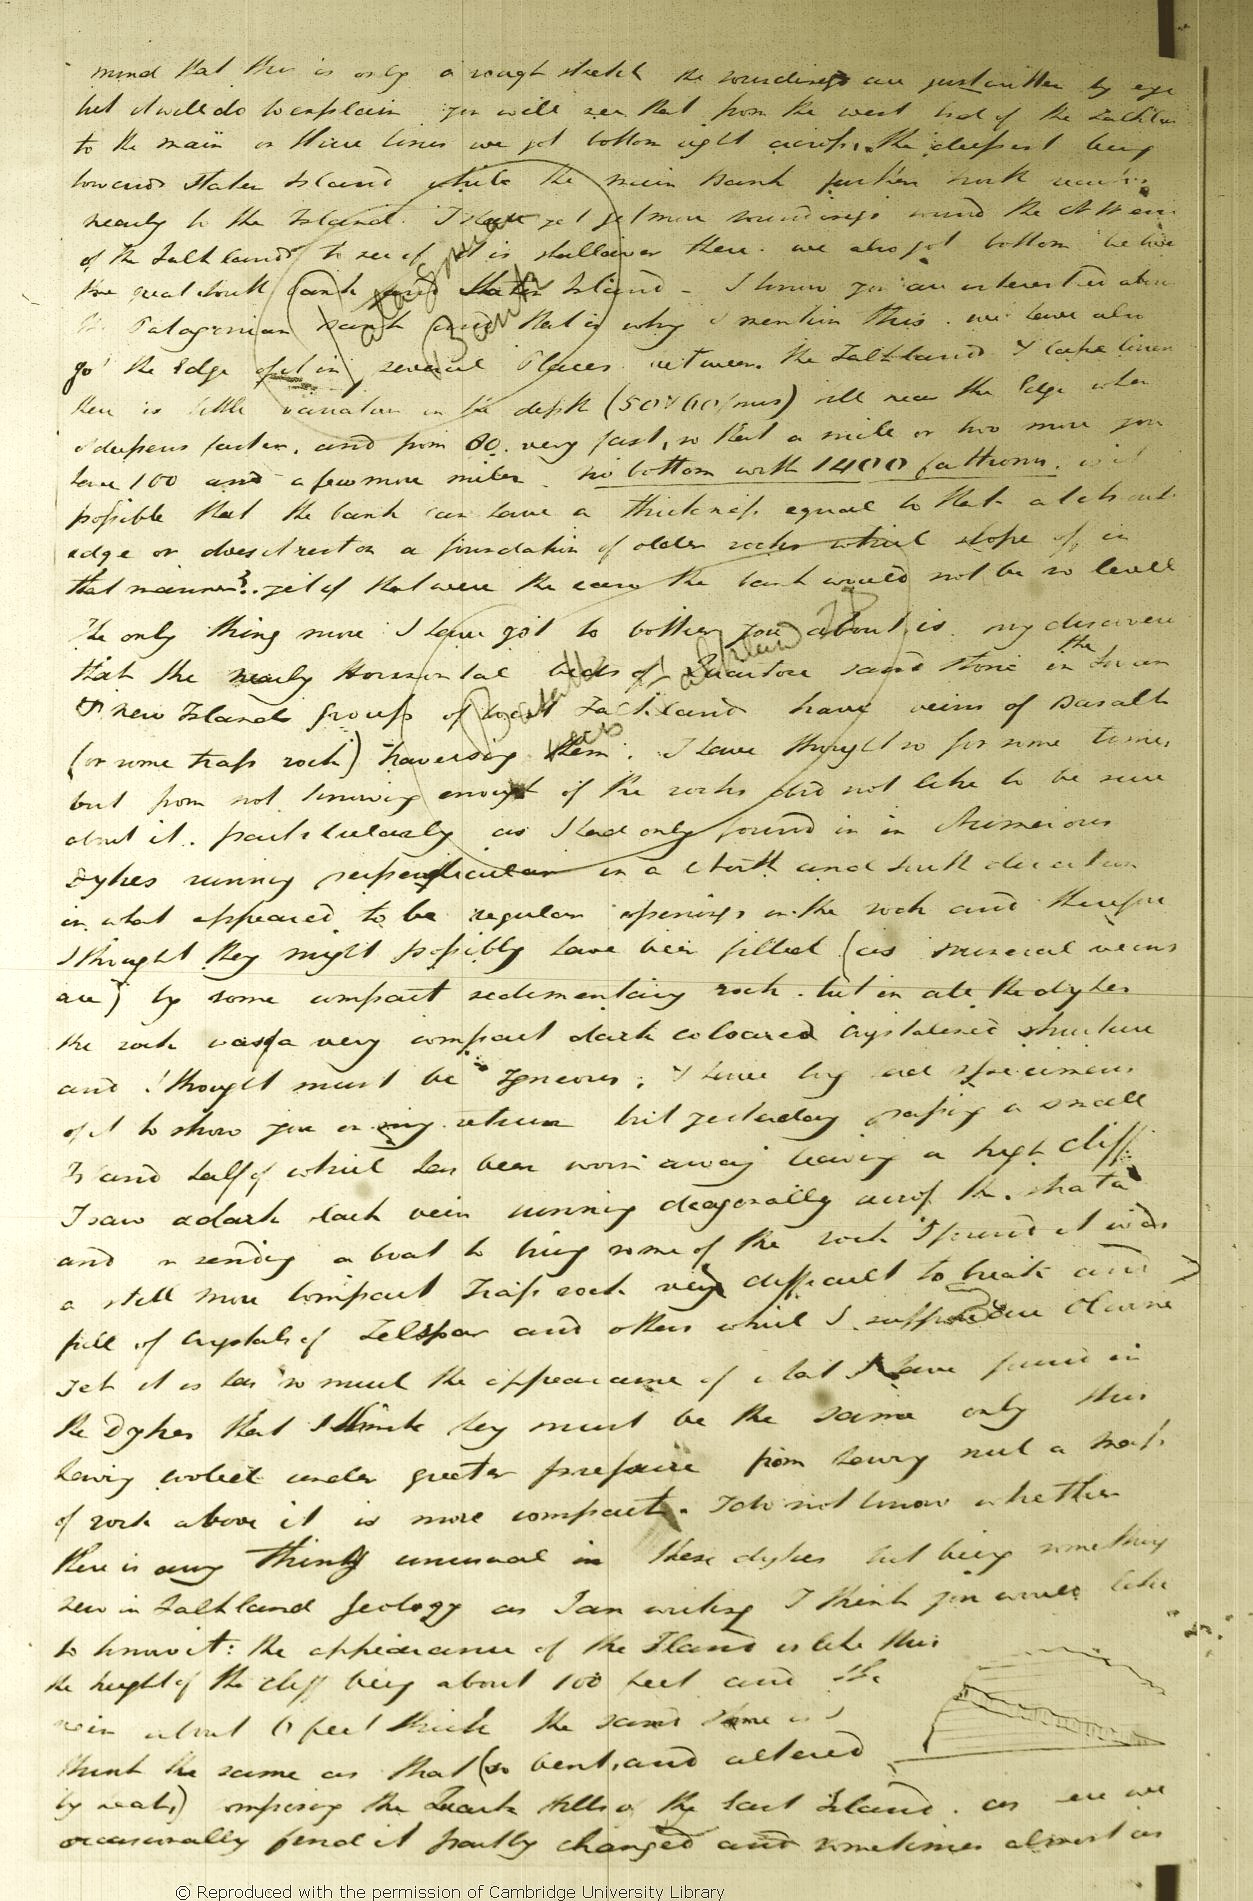 mind that this is only a rough sketch the soundings are just written by eye
but it will do to explain you will see that from the west end of the Falklan
to the main in three lines we got bottom right across, the deepest being
towards Staten Island while the main bank further north reaches
nearly to the Island. I have yet to get more soundings round the N W end
of the Falklands to see if it is shallower there. we also got bottom between
the great south bank and Staten Island – I know you are interested about
the Patagonian bank and that is why I mention this. we have also
got the Edge of it in several Places between the Falklands & Cape Virgin
there is little variation in the depth (50 & 60 fms) till near the Edge when
it deepens faster, and from 80 very fast, so that a mile or two more you
have 100 and a few more miles no bottom with 1400 fathoms. is it
possible that the bank can have a thickness equal to that at its
edge or does it rest on a foundation of older rocks which slope off in
that manner?. yet if that were the case the bank would not be so level
The only thing more I have got to bother you about is my discovery
that the nearly Horizontal beds of Quartose sand stone in the Swan
& New Islands group of West Falkland have veins of Basalt
(or some trap rock) traversing them. I have thought so for some time,
but from not knowing enough of the rocks did not like to be sure
about it. particularly as I had only found in in Numerous
Dykes running perpendicular in a North and South direction
in what appeared to be regular openings in the rock and therefore
I thought they might possibly have been filled (as mineral veins
are) by some compact sedimentary rock. but in all the dykes
the rock was of a very compact dark coloured Crystalised structure
and I thought must be Igneous. I have by me specimens
of it to show you on my return but yesterday passing a small
Island half of which has been worn away leaving a high cliff
I saw a dark vein running diagonally across the strata
and on sending a boat to bring some of the rock I found it was
a still more compact Trap rock very difficult to break and
full of Crystals of Felspar and others which I suppose are Olivine
Yet it is has so much the appearance of what I have found in
the Dykes that I think they must be the same only this
having cooled under greater pressure from having such a mass
of rock above it is more compact. I do not know whether
there is any thing unusual in these dykes but being something
new in Falkland Geology as I am writing I think you would like
to know it: the appearance of the Island is like this
the height of the cliff being about 100 feet and the
vein about 6 feet thick the sand stone is I
think the same as that (so bent, and altered
by heat,) composing the Quartz Hills of the East Island. as we
occasionally find it partly changed and sometimes almost as
Patagonian
Bank
Basalt
Falkland Is
© Reproduced with the permission of Cambridge University Library